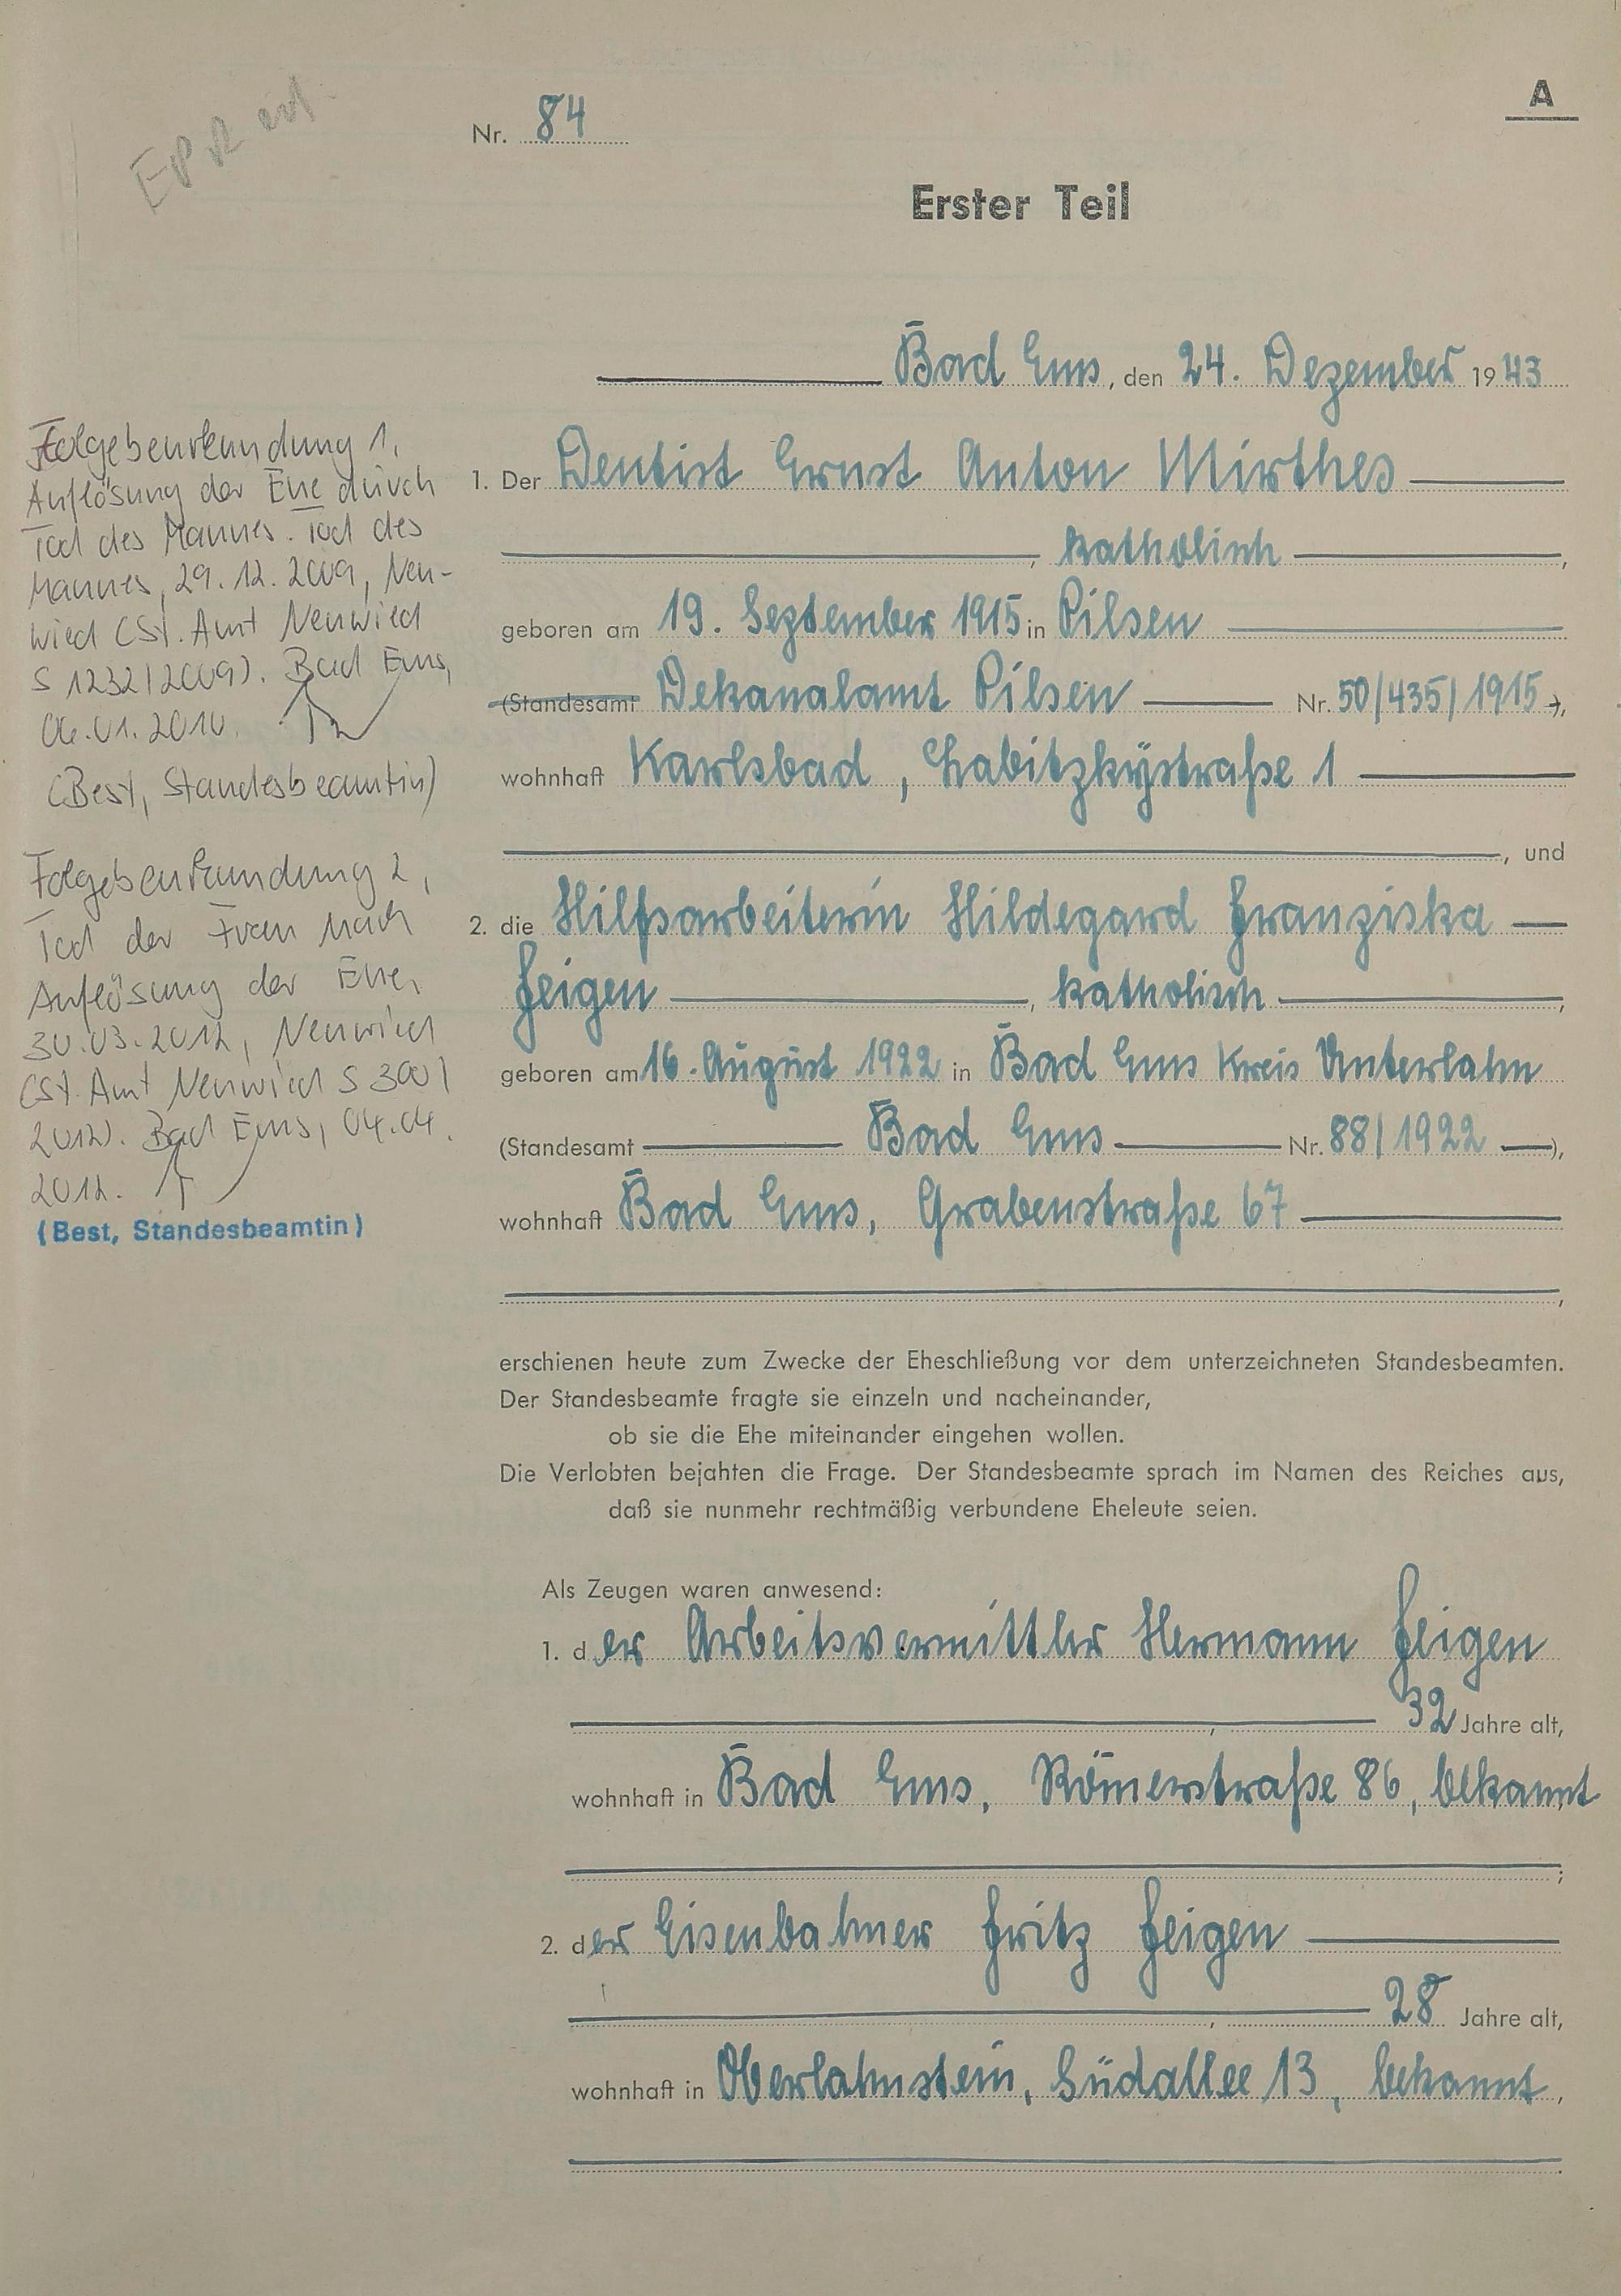 EPR erl.
Nr. 84
A
Erster Teil
Bad Ems, den 24. Dezember 1943
1. Der Dentist Ernst Anton Mirthes
, katholisch ,
geboren am 19. September 1915 in Pilsen
(Standesamt Dekanalamt Pilsen Nr. 50/435/1915 ),
wohnhaft Karlsbad, Labitzkÿstraße 1
, und
2. die Hilfsarbeiterin Hildegard Franziska
Feigen , katholisch ,
geboren am 16. August 1922 in Bad Ems Kreis Unterlahn
(Standesamt Bad Ems Nr. 88/1922 ),
wohnhaft Bad Ems, Grabenstraße 67
,
Folgebeurkundung 1,
Auflösung der Ehe durch
Tod des Mannes. Tod des
Mannes, 29.12.2009, Neu-
wied (St. Amt Neuwied
S 1232/2009). Bad Ems,
06.01.2010.
(Best, Standesbeamtin)
Folgebeurkundung 2,
Tod der Frau nach
Auflösung der Ehe,
30.03.2012, Neuwied
(St. Amt Neuwied S 300/
2012). Bad Ems, 04.04.
2012.
(Best, Standesbeamtin)
erschienen heute zum Zwecke der Eheschließung vor dem unterzeichneten Standesbeamten.
Der Standesbeamte fragte sie einzeln und nacheinander,
ob sie die Ehe miteinander eingehen wollen.
Die Verlobten bejahten die Frage. Der Standesbeamte sprach im Namen des Reiches aus,
daß sie nunmehr rechtmäßig verbundene Eheleute seien.
Als Zeugen waren anwesend:
1. der Arbeitsvermittler Hermann Feigen
, 32 Jahre alt,
wohnhaft in Bad Ems, Römerstraße 86, bekannt
;
2. der Eisenbahner Fritz Feigen
, 28 Jahre alt,
wohnhaft in Oberlahnstein, Südallee 13, bekannt,
.